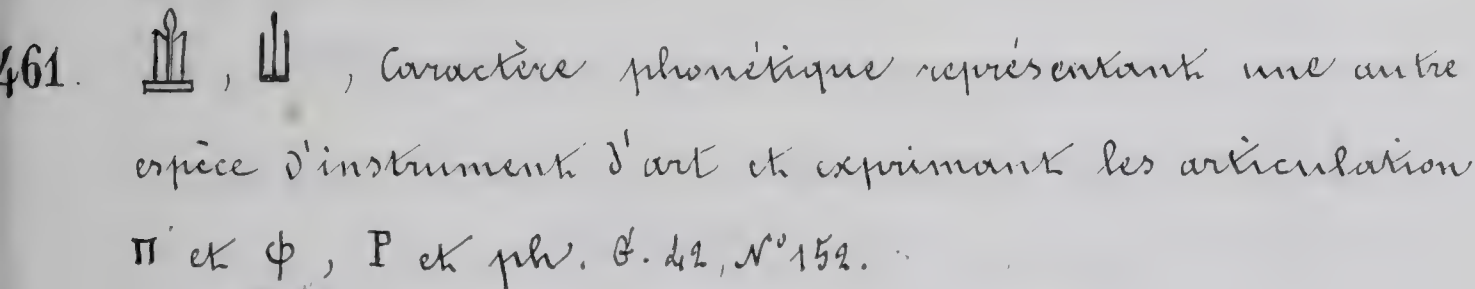 461. , , Caractère phonétique représentant une autre
espèce d'instrument d'art et exprimant les articulation
π et ϕ, P et ph. G. 42, N° 152.